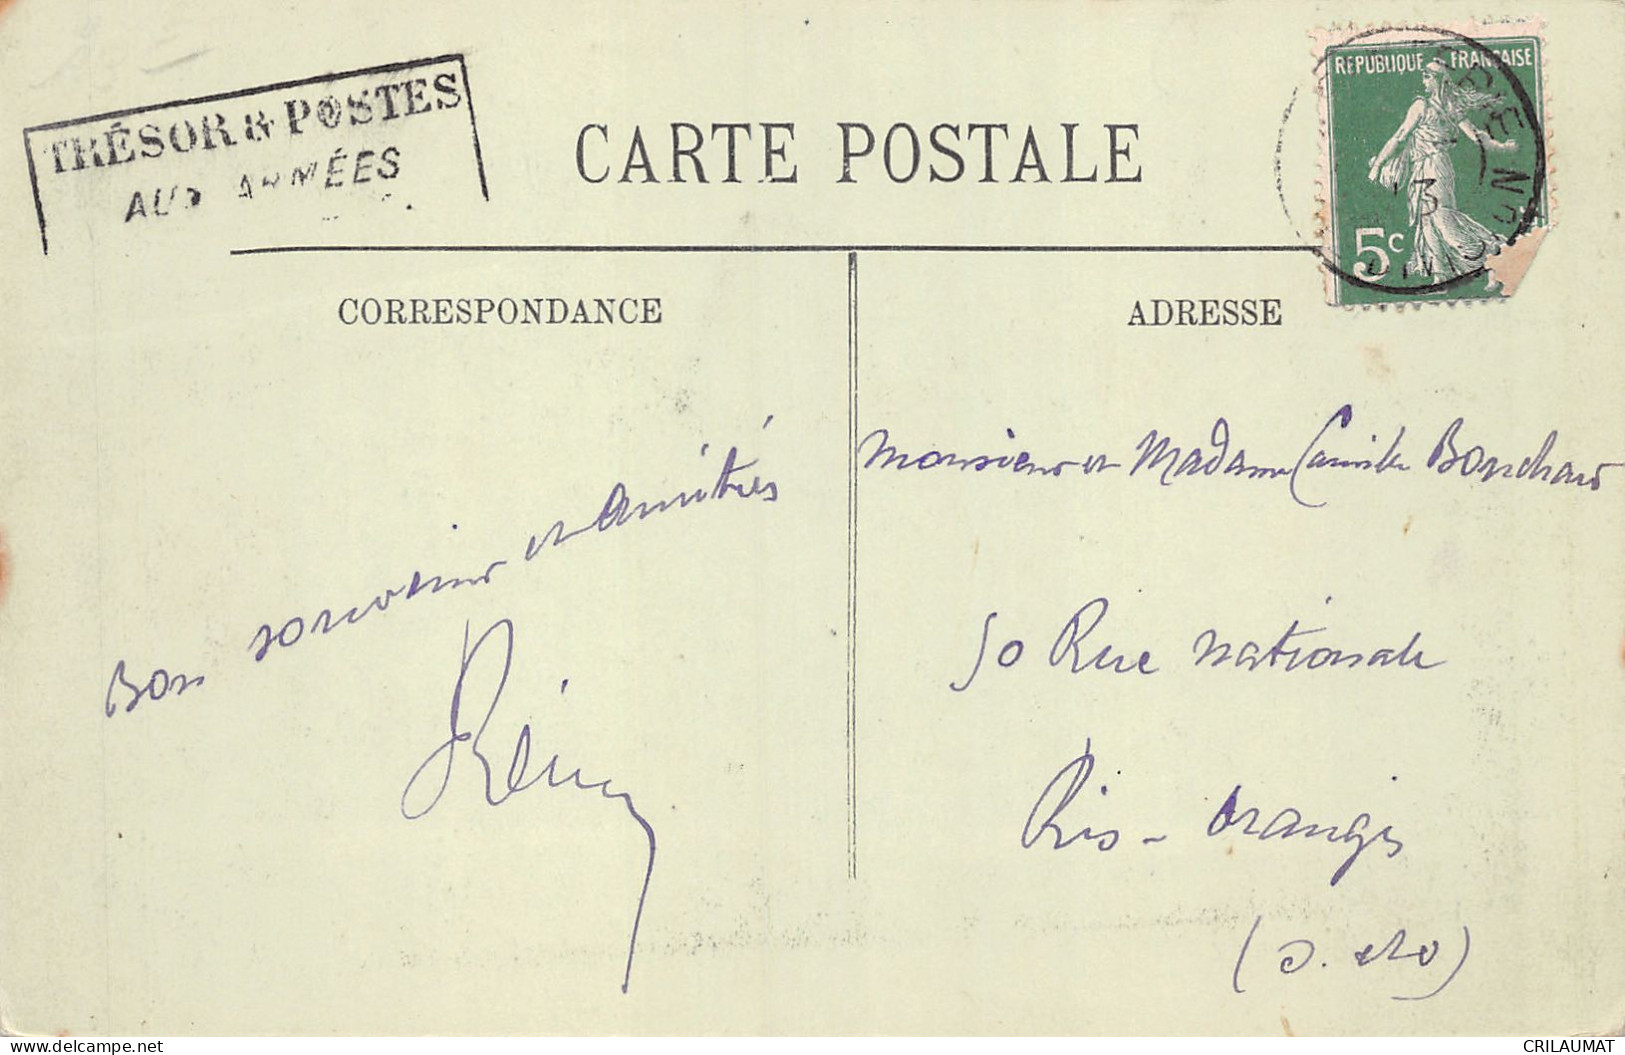 TRÉSOR & POSTES
AUX ARMÉES
CARTE POSTALE
REPUBLIQUE FRANÇAISE
5c
CORRESPONDANCE
ADRESSE
Bon souvenir et amitiés
Rémy
Monsieur et Madame Camille
50 Rue Nationale
Ris-Orangis
(S. et O)
CRILAUMAT